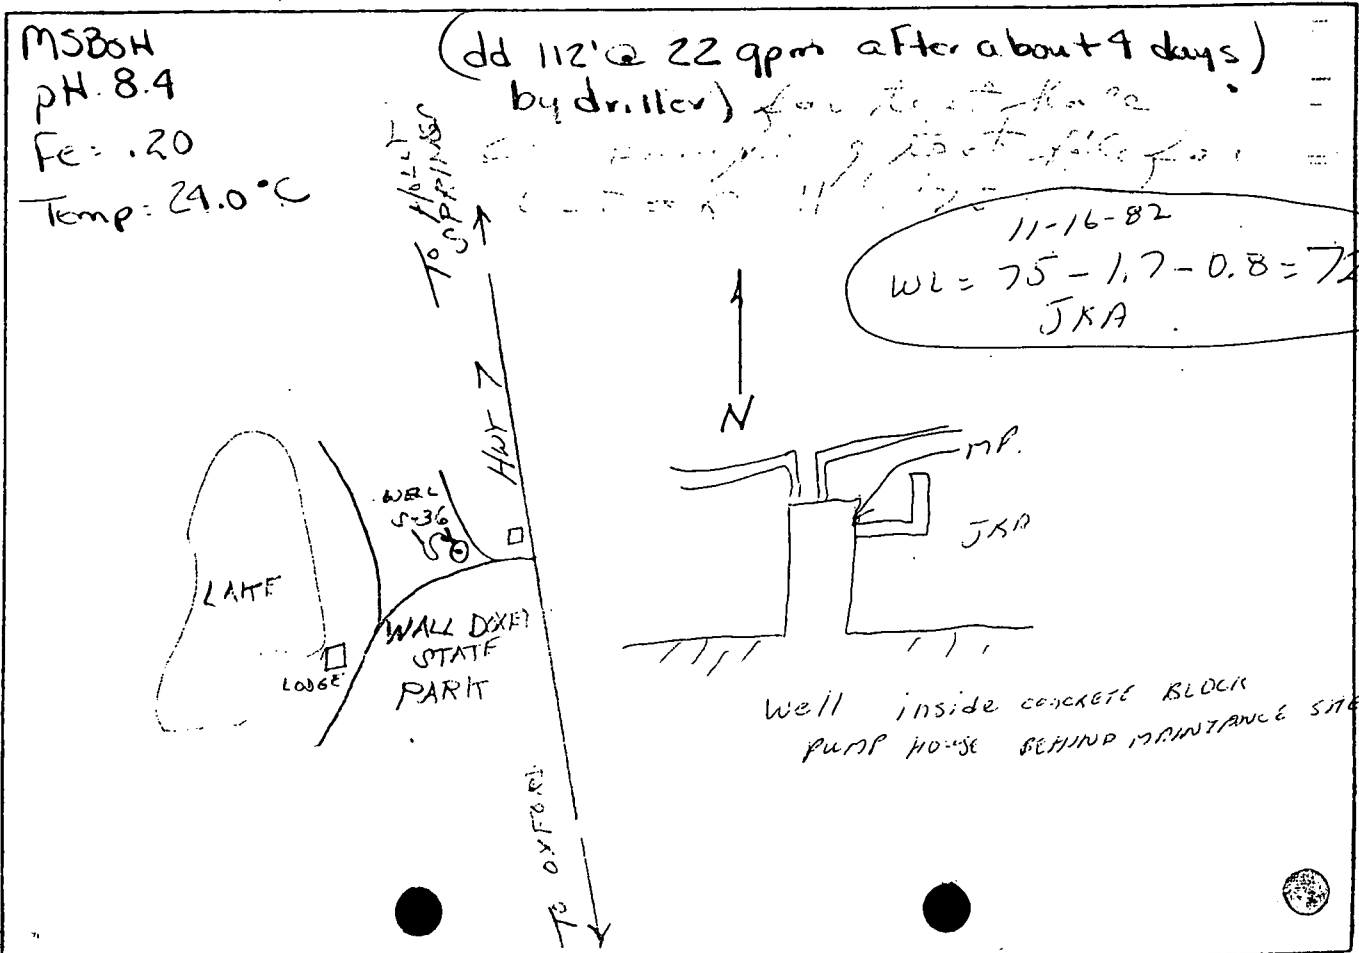 MSBOH
pH. 8.4
Fe = .20
Temp: 24.0°C
(dd 112' @ 22 gpm after about 4 days)
by driller) for test
test
11-16-82
WL = 75 - 1.7 - 0.8 = 72
JKA
To HOLLY
SPRINGS
HWY 7
N
MP.
JKA
WELL
S-36
LAKE
LODGE
WALL DOXEY
STATE
PARK
Well inside CONCRETE BLOCK
PUMP HOUSE BEHIND MAINTANCE SITE
To OXFORD